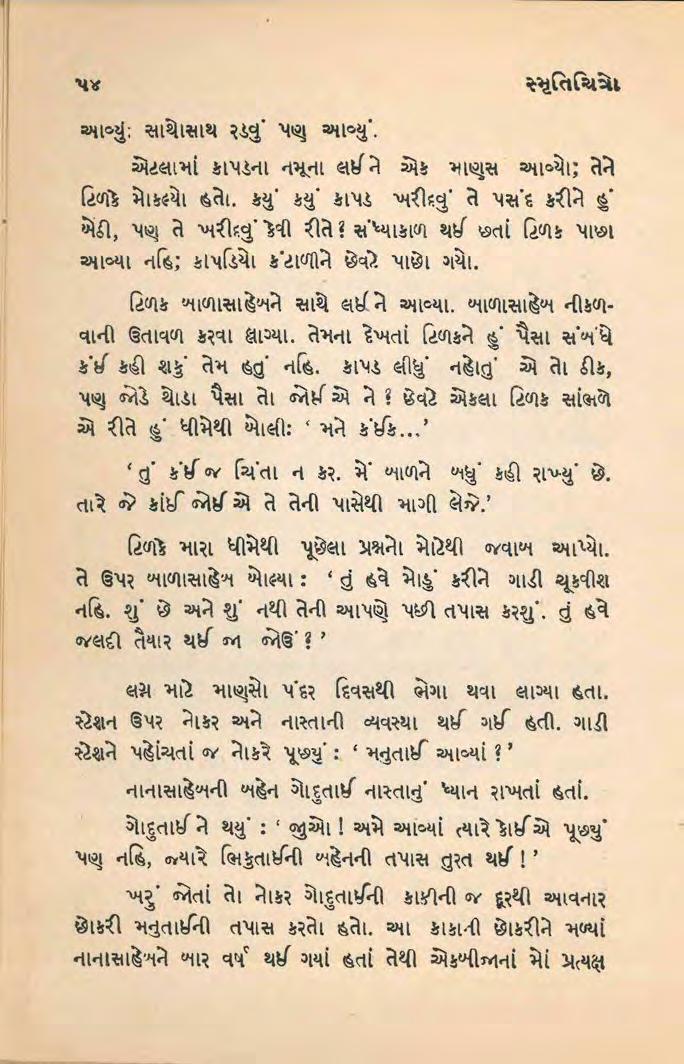 ૫૪ સ્મૃતિચિત્રો
આવ્યું; સાથોસાથ રડવું પણ આવ્યું.
એટલામાં કાપડના નમૂના લઈને એક માણસ આવ્યો; તેને
ટિળકે મોકલ્યો હતો. કયું કયું કાપડ ખરીદવું તે પસંદ કરીને હું
બેઠી, પણ તે ખરીદવું કેવી રીતે? સંધ્યાકાળ થઈ છતાં ટિળક પાછા
આવ્યા નહિ; કાપડિયો કંટાળીને છેવટે પાછો ગયો.
ટિળક બાળાસાહેબને સાથે લઈને આવ્યા. બાળાસાહેબ નીકળ-
વાની ઉતાવળ કરવા લાગ્યા. તેમના દેખતાં ટિળકને હું પૈસા સંબંધે
કંઈ કહી શકું તેમ હતું નહિ. કાપડ લીધું નહોતું એ તો ઠીક,
પણ જોડે થોડા પૈસા તો જોઈએ ને? છેવટે એકલા ટિળક સાંભળે
એ રીતે હું ધીમેથી બોલી: ‘ મને કંઈક...’
‘તું કંઈ જ ચિંતા ન કર. મેં બાળને બધું કહી રાખ્યું છે.
તારે જે કાંઈ જોઈએ તે તેની પાસેથી માગી લેજે.’
ટિળકે મારા ધીમેથી પૂછેલા પ્રશ્નનો મોટેથી જવાબ આપ્યો.
તે ઉપર બાળાસાહેબ બોલ્યા : ‘ તું હવે મોડું કરીને ગાડી ચૂકવીશ
નહિ. શું છે અને શું નથી તેની આપણે પછી તપાસ કરશું. તું હવે
જલદી તૈયાર થઈ જા જોઉં ? ’
લગ્ન માટે માણસો પંદર દિવસથી ભેગા થવા લાગ્યા હતા.
સ્ટેશન ઉપર નોકર અને નાસ્તાની વ્યવસ્થા થઈ ગઈ હતી. ગાડી
સ્ટેશને પહોંચતાં જ નોકરે પૂછ્યું : ‘ મનુતાઈ આવ્યાં ? ’
નાનાસાહેબની બહેન ગોદુતાઈ નાસ્તાનું ધ્યાન રાખતાં હતાં.
ગોદુતાઈ ને થયું : ‘ જુઓ ! અમે આવ્યાં ત્યારે કોઈએ પૂછ્યું
પણ નહિ, જ્યારે ભિકુતાઈની બહેનની તપાસ તુરત થઈ ! ’
ખરું જોતાં તો નોકર ગોદુતાઈની કાકીની જ દૂરથી આવનાર
છોકરી મનુતાઈની તપાસ કરતો હતો. આ કાકાની છોકરીને મળ્યાં
નાનાસાહેબને બાર વર્ષ થઈ ગયાં હતાં તેથી એકબીજાનાં મોં પ્રત્યક્ષ